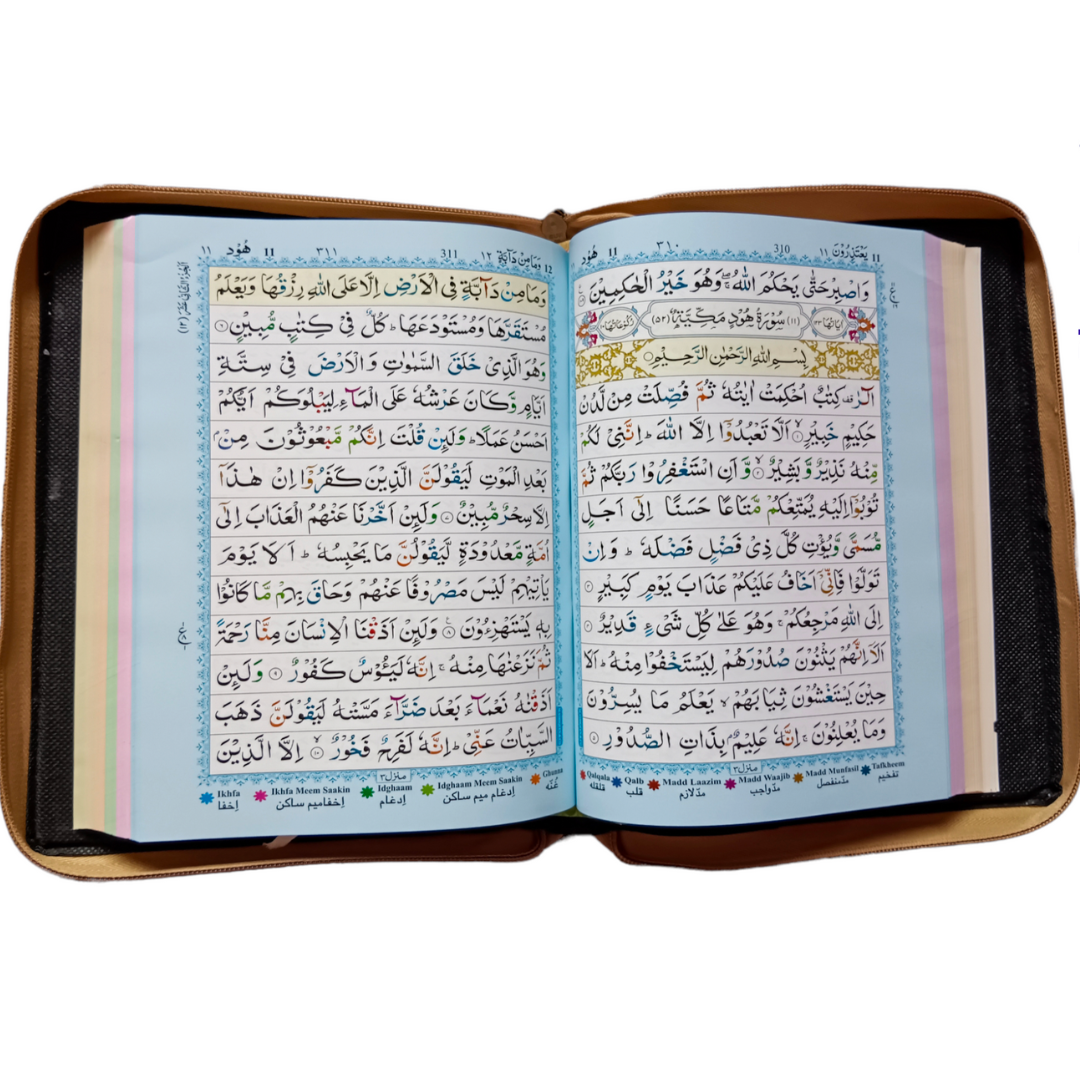 يَعْتَذِرُوْنَ ١١ 11
310
٣١٠
هُوْد 11
وَاصْبِرْ حَتّٰى يَحْكُمَ اللّٰهُ ۖۚ وَهُوَ خَيْرُ الْحٰكِمِيْنَ
(١١) سُوْرَةُ هُوْدٍ مَكِّيَّةٌ (٥٢)
بِسْمِ اللّٰهِ الرَّحْمٰنِ الرَّحِيْمِ
الٓرٰ ۚ كِتٰبٌ اُحْكِمَتْ اٰيٰتُهٗ ثُمَّ فُصِّلَتْ مِنْ لَّدُنْ
حَكِيْمٍ خَبِيْرٍ ۙ اَلَّا تَعْبُدُوْۤا اِلَّا اللّٰهَ ؕ اِنَّنِىْ لَكُمْ
مِّنْهُ نَذِيْرٌ وَّبَشِيْرٌ ۙ وَّاَنِ اسْتَغْفِرُوْا رَبَّكُمْ ثُمَّ
تُوْبُوْۤا اِلَيْهِ يُمَتِّعْكُمْ مَّتَاعًا حَسَنًا اِلٰٓى اَجَلٍ
مُّسَمًّى وَّيُؤْتِ كُلَّ ذِىْ فَضْلٍ فَضْلَهٗ ؕ وَاِنْ
تَوَلَّوْا فَاِنِّىْۤ اَخَافُ عَلَيْكُمْ عَذَابَ يَوْمٍ كَبِيْرٍ ٣
اِلَى اللّٰهِ مَرْجِعُكُمْ ۚ وَهُوَ عَلٰى كُلِّ شَىْءٍ قَدِيْرٌ ٤
اَلَاۤ اِنَّهُمْ يَثْنُوْنَ صُدُوْرَهُمْ لِيَسْتَخْفُوْا مِنْهُ ؕ اَلَا
حِيْنَ يَسْتَغْشُوْنَ ثِيَابَهُمْ ۙ يَعْلَمُ مَا يُسِرُّوْنَ
وَمَا يُعْلِنُوْنَ ۚ اِنَّهٗ عَلِيْمٌۢ بِذَاتِ الصُّدُوْرِ ٥
منزل ٣
Qalqala Qalb Madd Laazim Madd Waajib Madd Munfasil Tafkheem
قلقله قلب مدّلازم مدّواجب مدّمنفصل تفخيم
12 وَمَا مِنْ دَآبَّةٍ ١٢
311
٣١١
11 هُوْد ١١
وَمَا مِنْ دَآبَّةٍ فِى الْاَرْضِ اِلَّا عَلَى اللّٰهِ رِزْقُهَا وَيَعْلَمُ
مُسْتَقَرَّهَا وَمُسْتَوْدَعَهَا ؕ كُلٌّ فِىْ كِتٰبٍ مُّبِيْنٍ ٦
وَهُوَ الَّذِىْ خَلَقَ السَّمٰوٰتِ وَالْاَرْضَ فِىْ سِتَّةِ
اَيَّامٍ وَّكَانَ عَرْشُهٗ عَلَى الْمَآءِ لِيَبْلُوَكُمْ اَيُّكُمْ
اَحْسَنُ عَمَلًا ؕ وَلَئِنْ قُلْتَ اِنَّكُمْ مَّبْعُوْثُوْنَ مِنْۢ
بَعْدِ الْمَوْتِ لَيَقُوْلَنَّ الَّذِيْنَ كَفَرُوْۤا اِنْ هٰذَاۤ
اِلَّا سِحْرٌ مُّبِيْنٌ ٧ وَلَئِنْ اَخَّرْنَا عَنْهُمُ الْعَذَابَ اِلٰٓى
اُمَّةٍ مَّعْدُوْدَةٍ لَّيَقُوْلُنَّ مَا يَحْبِسُهٗ ؕ اَلَا يَوْمَ
يَاْتِيْهِمْ لَيْسَ مَصْرُوْفًا عَنْهُمْ وَحَاقَ بِهِمْ مَّا كَانُوْا
بِهٖ يَسْتَهْزِءُوْنَ ٨ وَلَئِنْ اَذَقْنَا الْاِنْسَانَ مِنَّا رَحْمَةً
ثُمَّ نَزَعْنٰهَا مِنْهُ ۚ اِنَّهٗ لَيَئُوْسٌ كَفُوْرٌ ٩ وَلَئِنْ
اَذَقْنٰهُ نَعْمَآءَ بَعْدَ ضَرَّآءَ مَسَّتْهُ لَيَقُوْلَنَّ ذَهَبَ
السَّيِّاٰتُ عَنِّىْ ؕ اِنَّهٗ لَفَرِحٌ فَخُوْرٌ ١٠ اِلَّا الَّذِيْنَ
منزل ٣
Ikhfa Ikhfa Meem Saakin Idghaam Idghaam Meem Saakin Ghunna
اِخفا اِخفاميم ساكن اِدغام اِدغام ميم ساكن غُنّه